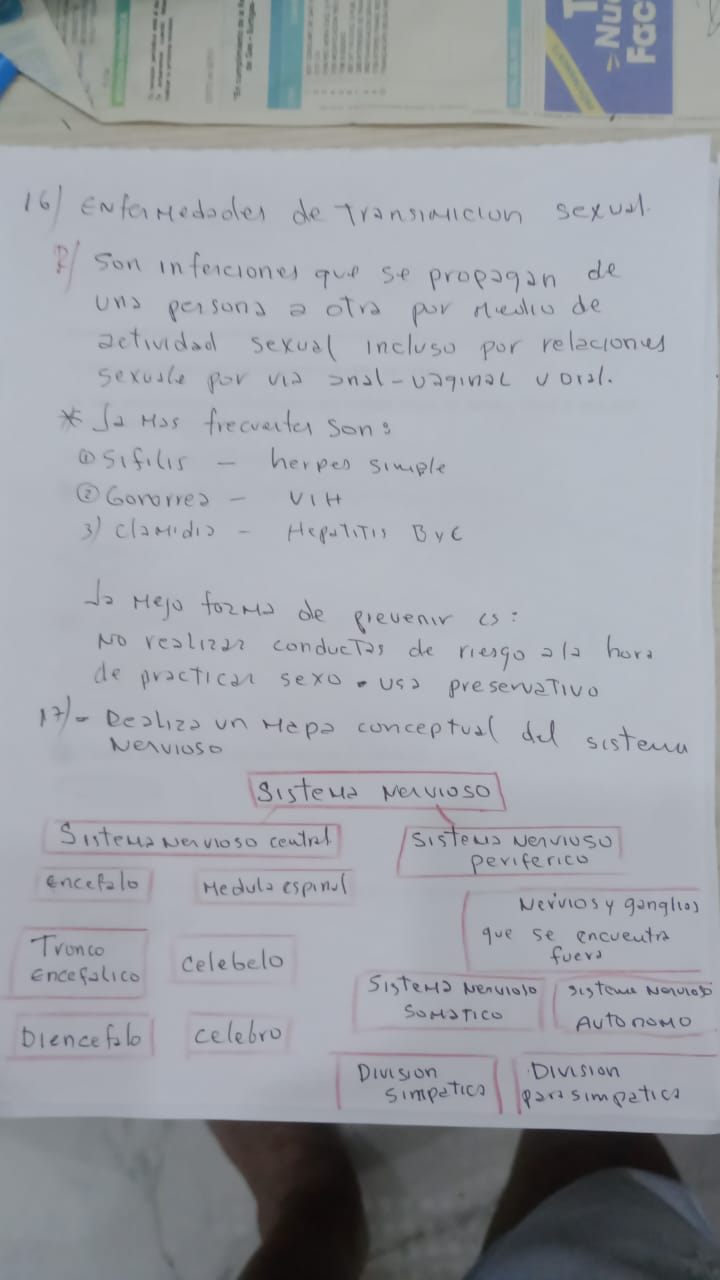 T
> Nuc
Fac
16) Enfermedades de transmicion sexual.
R/ Son infecciones que se propagan de
una persona a otra por medio de
actividad sexual incluso por relaciones
sexuale por via anal-vaginal y oral.
* La mas frecuentes son:
① Sifilis - herpes simple
② Gonorrea - VIH
3) Clamidia - Hepatitis B y C
La mejo forma de prevenir es:
No realizar conductas de riesgo a la hora
de practicar sexo . usa preservativo
17)- Realiza un mapa conceptual del sistema
nervioso
Sistema nervioso
Sistema nervioso central
Sistema nervioso
periferico
encefalo
Medula espinal
Nervios y ganglios
que se encuentra
fuera
Tronco
encefalico
celebelo
Sistema nervioso
somatico
sistema nervioso
autonomo
Diencefalo
celebro
Division
simpatica
Division
parasimpatica